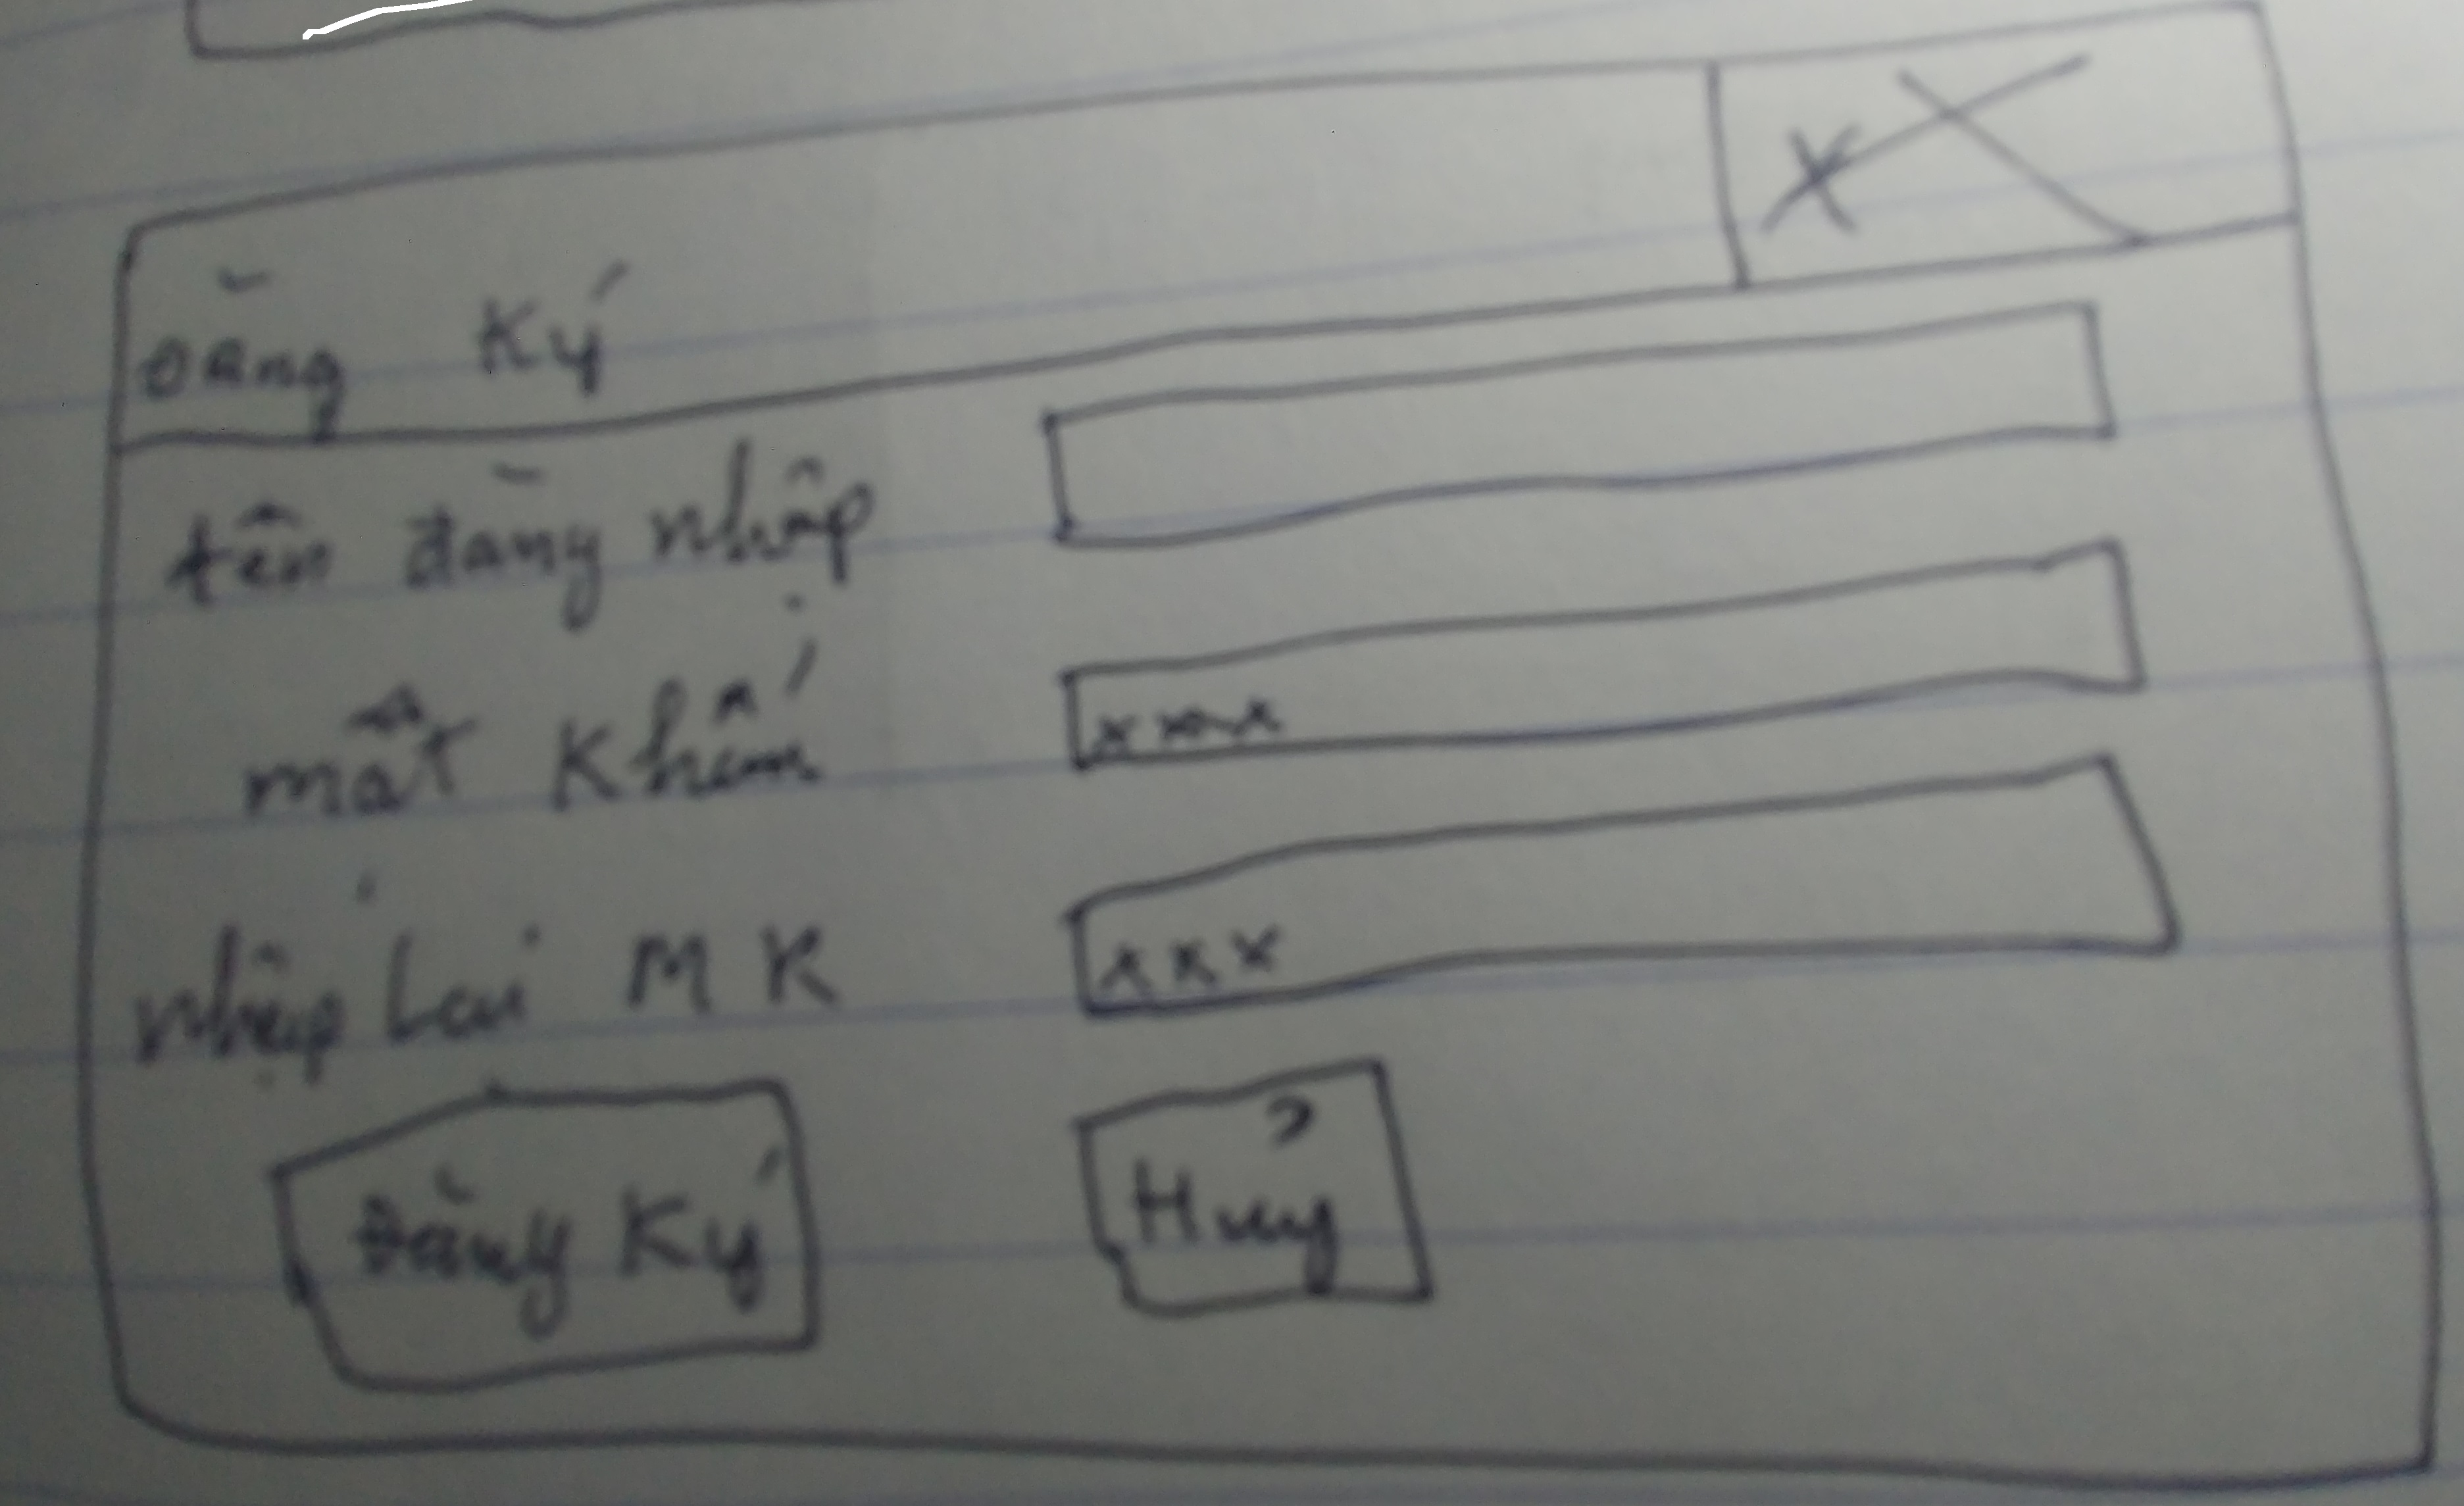 X
Đăng Ký
tên đăng nhập
mật Khẩu
xxxx
nhập lại MK
xxx
Đăng Ký
Huỷ